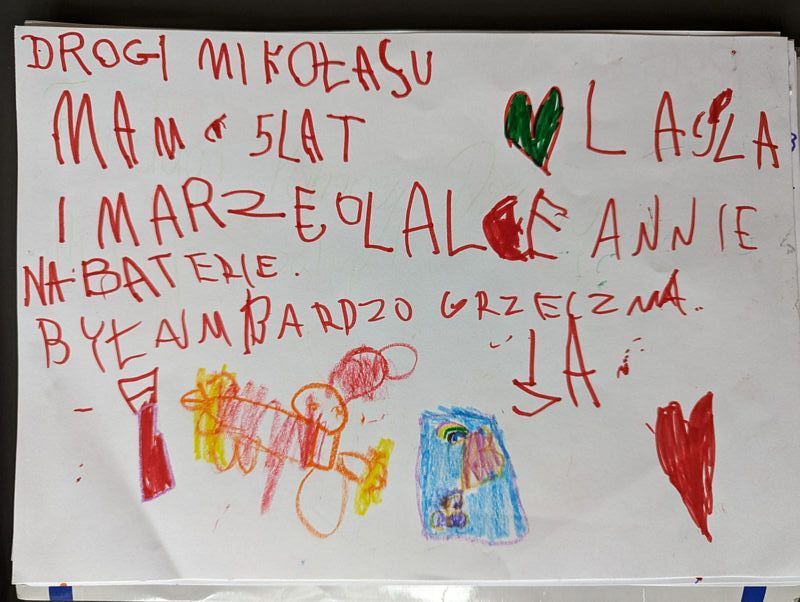 DROGI MIKOŁAJU
MAM 5 LAT
LAJLA
I MARZE O LALCE ANNIE
NA BATERIE.
BYŁAM BARDZO GRZECZNA.
JA